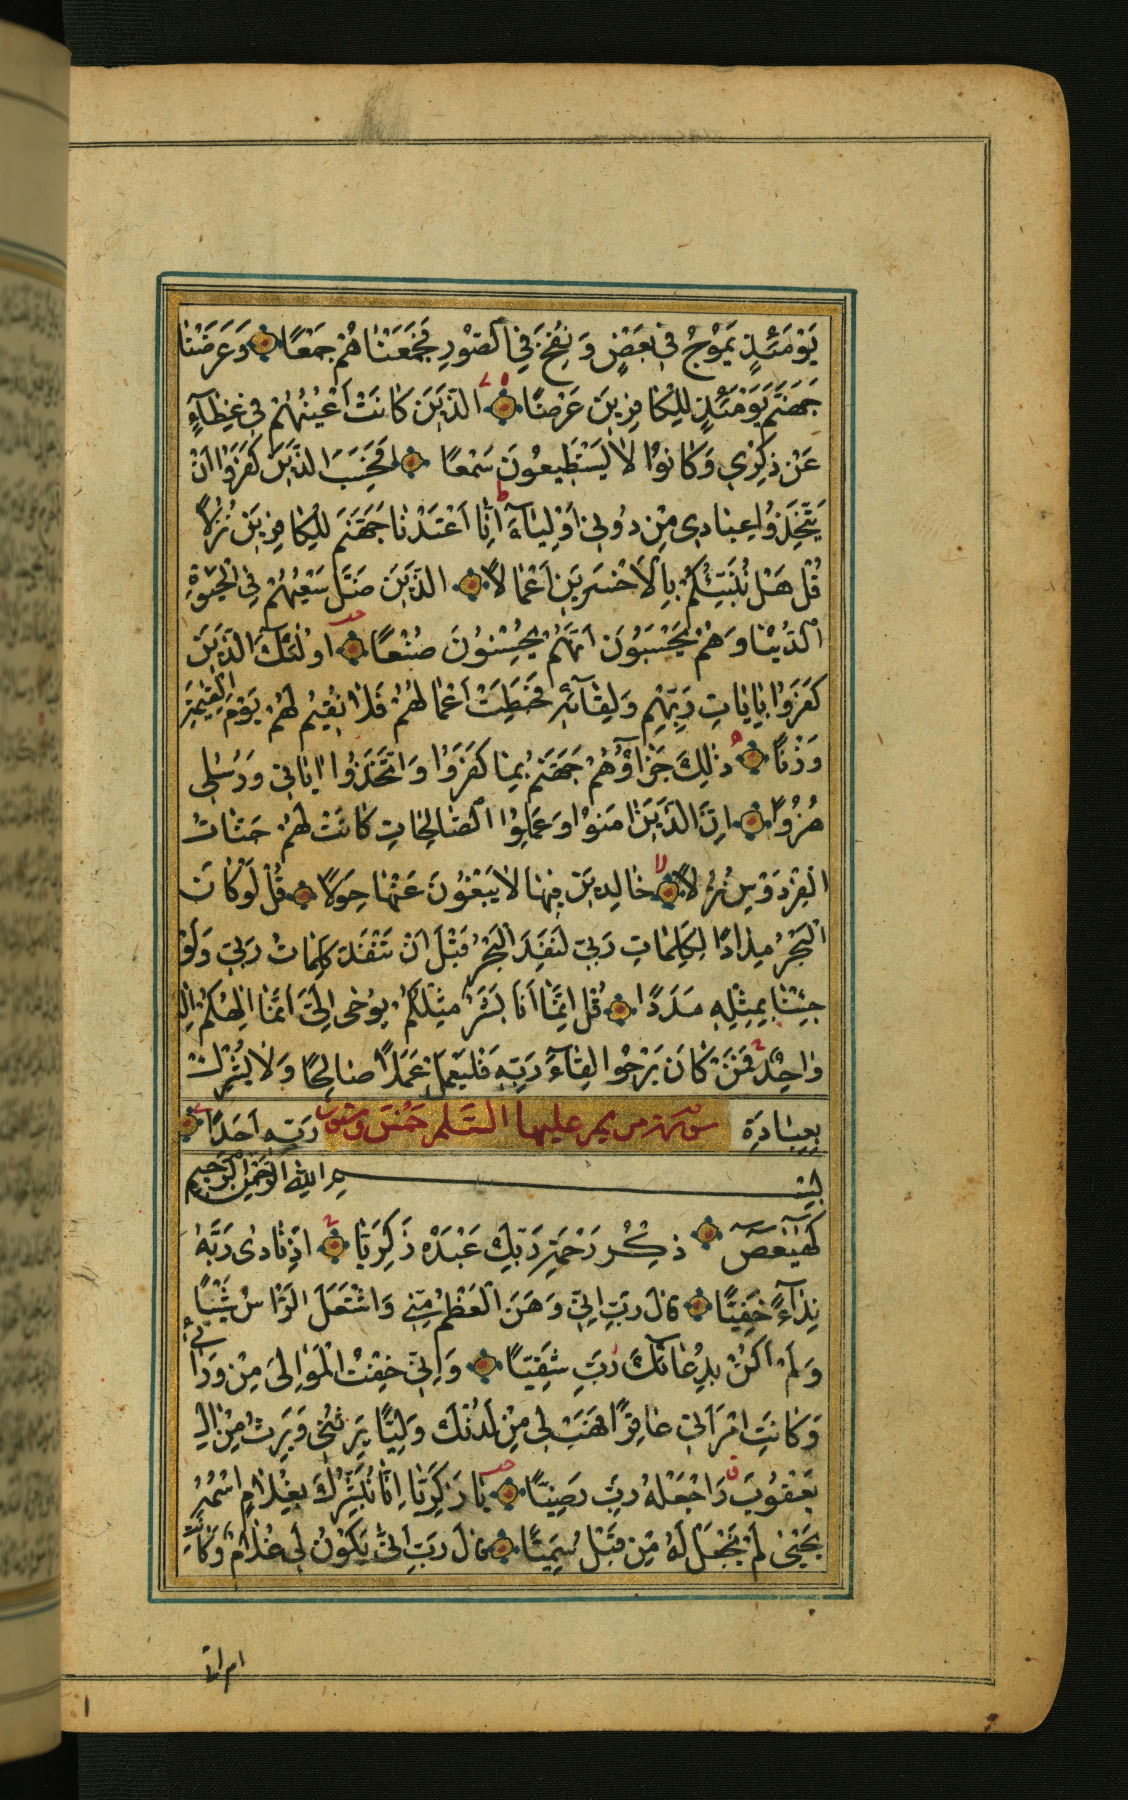 يَوْمَئِذٍ يَمُوجُ فِي بَعْضٍ وَنُفِخَ فِي الصُّورِ فَجَمَعْنَاهُمْ جَمْعًا وَعَرَضْنَا
جَهَنَّمَ يَوْمَئِذٍ لِلْكَافِرِينَ عَرْضًا الَّذِينَ كَانَتْ أَعْيُنُهُمْ فِي غِطَاءٍ
عَنْ ذِكْرِي وَكَانُوا لَا يَسْتَطِيعُونَ سَمْعًا أَفَحَسِبَ الَّذِينَ كَفَرُوا أَنْ
يَتَّخِذُوا عِبَادِي مِنْ دُونِي أَوْلِيَاءَ إِنَّا أَعْتَدْنَا جَهَنَّمَ لِلْكَافِرِينَ نُزُلًا
قُلْ هَلْ نُنَبِّئُكُمْ بِالْأَخْسَرِينَ أَعْمَالًا الَّذِينَ ضَلَّ سَعْيُهُمْ فِي الْحَيٰوةِ
الدُّنْيَا وَهُمْ يَحْسَبُونَ أَنَّهُمْ يُحْسِنُونَ صُنْعًا أُولَئِكَ الَّذِينَ
كَفَرُوا بِآيَاتِ رَبِّهِمْ وَلِقَائِهِ فَحَبِطَتْ أَعْمَالُهُمْ فَلَا نُقِيمُ لَهُمْ يَوْمَ الْقِيٰمَةِ
وَزْنًا ذٰلِكَ جَزَاؤُهُمْ جَهَنَّمُ بِمَا كَفَرُوا وَاتَّخَذُوا آيَاتِي وَرُسُلِي
هُزُوًا إِنَّ الَّذِينَ آمَنُوا وَعَمِلُوا الصَّالِحَاتِ كَانَتْ لَهُمْ جَنَّاتُ
الْفِرْدَوْسِ نُزُلًا خَالِدِينَ فِيهَا لَا يَبْغُونَ عَنْهَا حِوَلًا قُلْ لَوْ كَانَ
الْبَحْرُ مِدَادًا لِكَلِمَاتِ رَبِّي لَنَفِدَ الْبَحْرُ قَبْلَ أَنْ تَنْفَدَ كَلِمَاتُ رَبِّي وَلَوْ
جِئْنَا بِمِثْلِهِ مَدَدًا قُلْ إِنَّمَا أَنَا بَشَرٌ مِثْلُكُمْ يُوحَى إِلَيَّ أَنَّمَا إِلٰهُكُمْ إِلٰهٌ
وَاحِدٌ فَمَنْ كَانَ يَرْجُوا لِقَاءَ رَبِّهِ فَلْيَعْمَلْ عَمَلًا صَالِحًا وَلَا يُشْرِكْ
بِعِبَادَةِ سورة مريم عليها السلم رَبِّهِ أَحَدًا
بِسْمِ اللّٰهِ الرَّحْمٰنِ الرَّحِيمِ
كٓهٰيٰعٓصٓ ذِكْرُ رَحْمَةِ رَبِّكَ عَبْدَهُ زَكَرِيَّا إِذْ نَادَى رَبَّهُ
نِدَاءً خَفِيًّا قَالَ رَبِّ إِنِّي وَهَنَ الْعَظْمُ مِنِّي وَاشْتَعَلَ الرَّأْسُ شَيْبًا
وَلَمْ أَكُنْ بِدُعَائِكَ رَبِّ شَقِيًّا وَإِنِّي خِفْتُ الْمَوَالِيَ مِنْ وَرَائِي
وَكَانَتِ امْرَأَتِي عَاقِرًا فَهَبْ لِي مِنْ لَدُنْكَ وَلِيًّا يَرِثُنِي وَيَرِثُ مِنْ آلِ
يَعْقُوبَ وَاجْعَلْهُ رَبِّ رَضِيًّا يَا زَكَرِيَّا إِنَّا نُبَشِّرُكَ بِغُلَامٍ اسْمُهُ
يَحْيَى لَمْ نَجْعَلْ لَهُ مِنْ قَبْلُ سَمِيًّا قَالَ رَبِّ أَنَّى يَكُونُ لِي غُلَامٌ وَكَانَتِ
امراتي